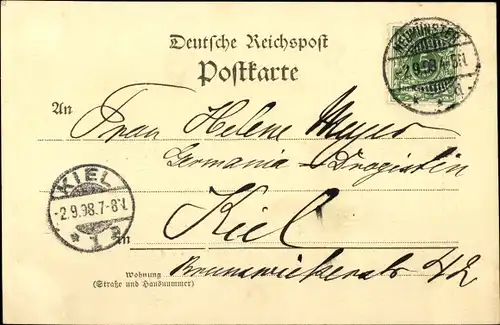 Deutsche Reichspost
Postkarte
NEUMÜNSTER
2.9.98.4-5N.
5
An
Frau Helene Meyer
Germania-Drogistin
KIEL
-2.9.98.7-8N.
* 1 *
in Kiel
Wohnung
(Straße und Hausnummer)
Brunswiekerstr 42